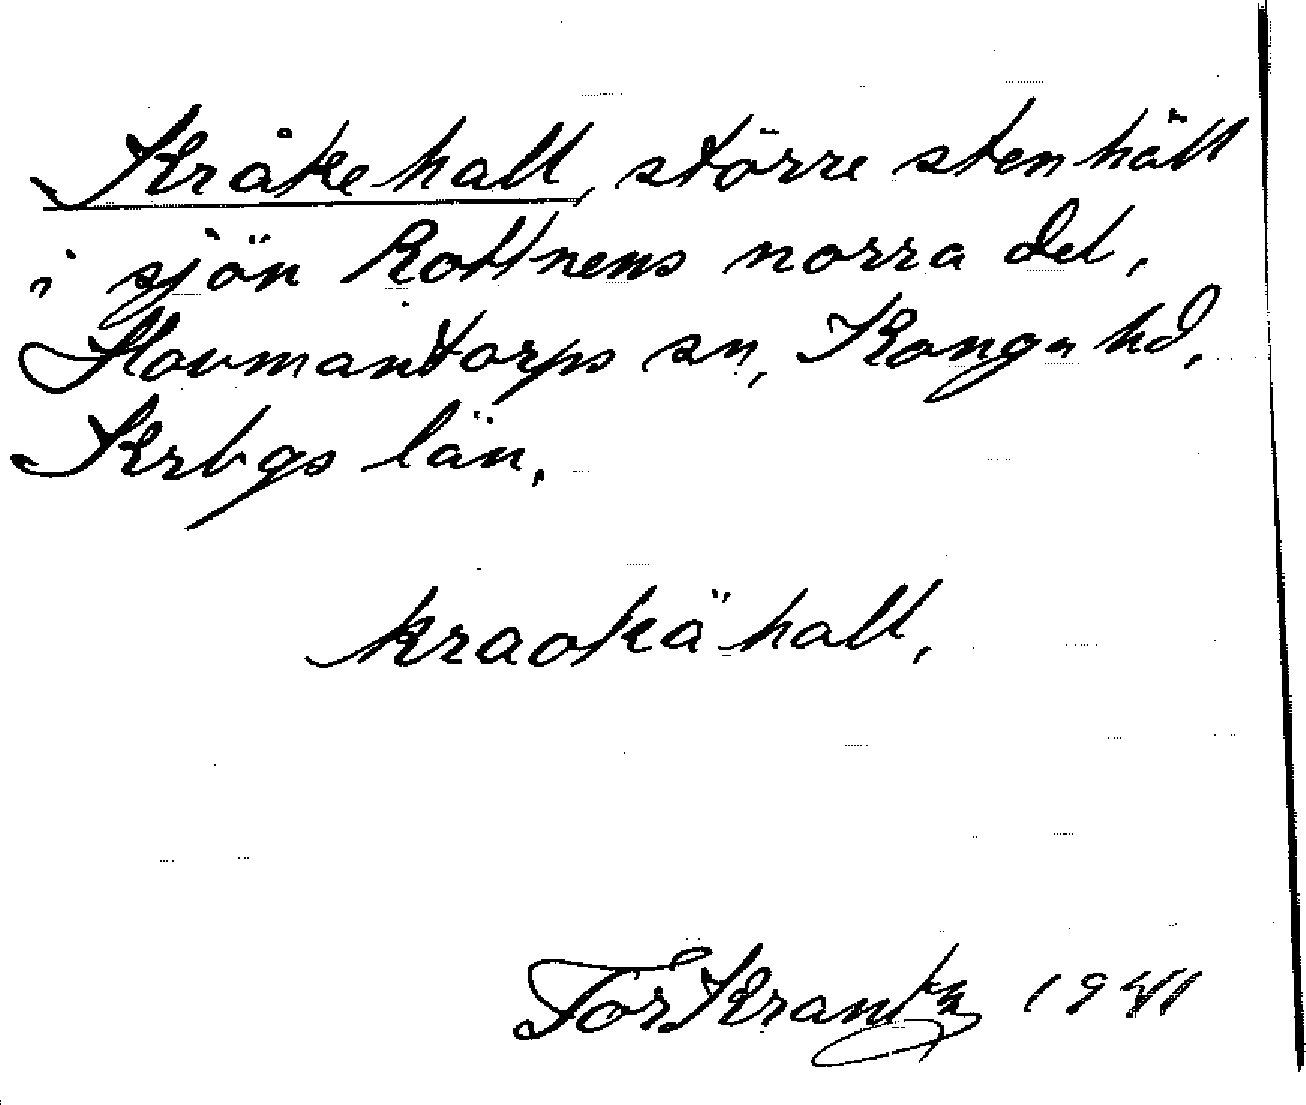 Kråkehall, större stenhäll
i sjön Rottnens norra del,
Hovmantorps sn, Konga hd,
Krbgs län.
kraokähall,
Tor Krantz 1941